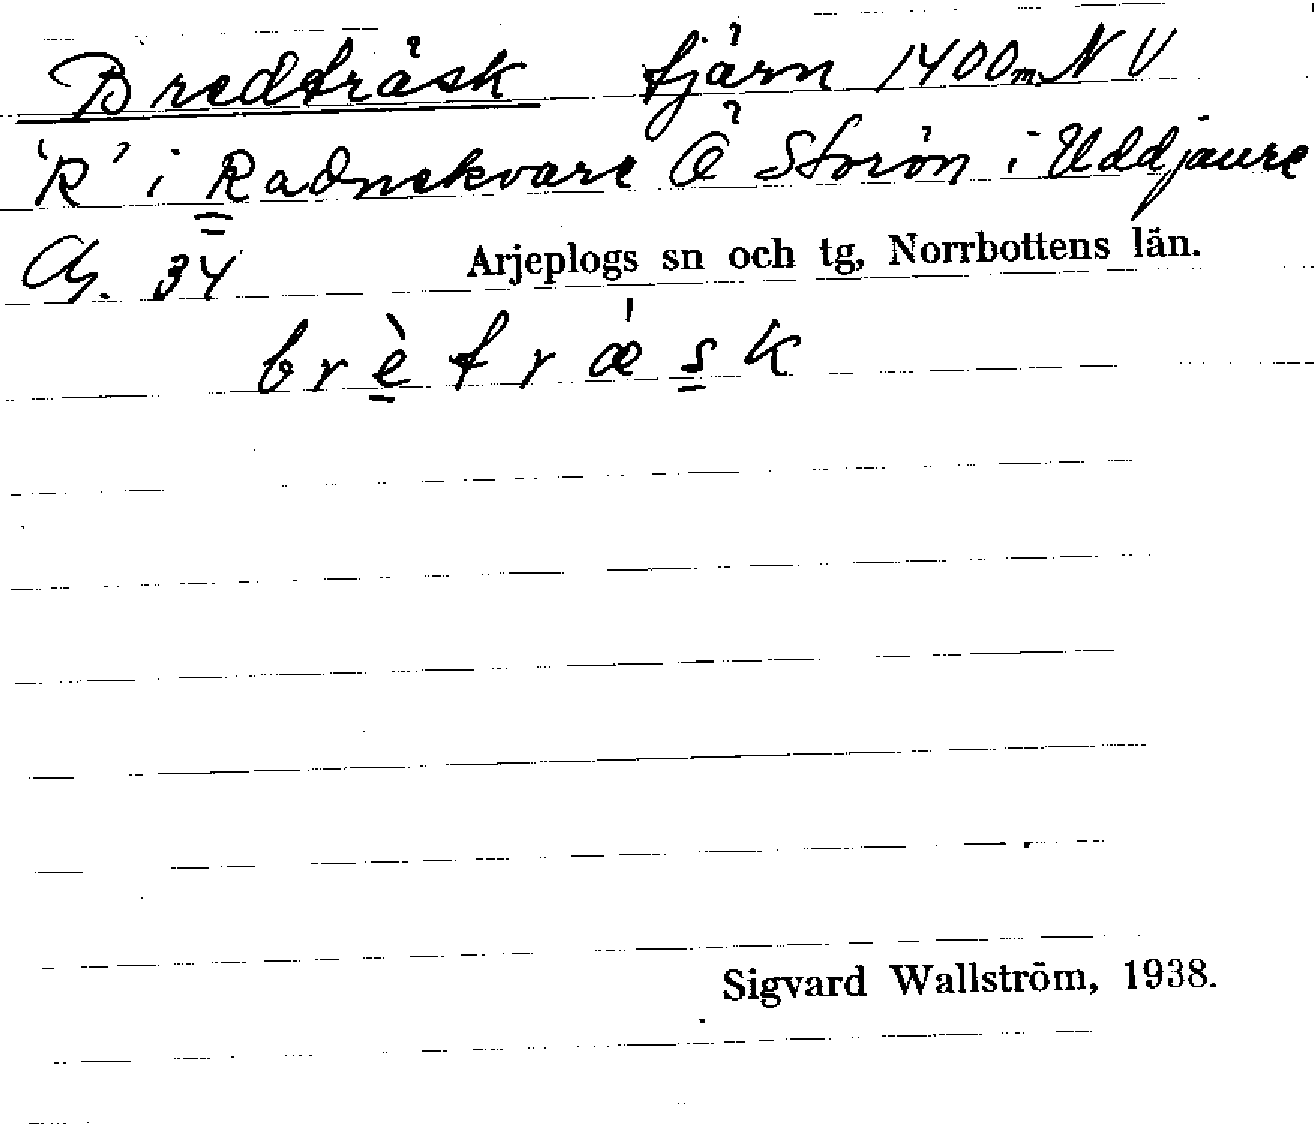 Bredträsk tjärn 1400 m NV
'R' i Radnekvare Ö Storön i Uddjaure
34 Arjeplogs sn och tg, Norrbottens län.
brètrǽsk
Sigvard Wallström, 1938.